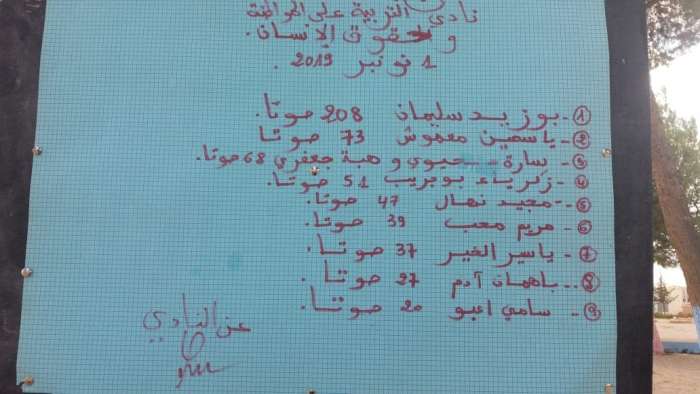 نادي التربية على المواطنة
و حقوق الإنسان.
1 نونبر 2019.
①- بوزيد سليمان 208 صوتا.
②- ياسمين معموش 73 صوتا
③- سارة حيوي و هبة جعفري 68 صوتا.
④- زكرياء بوجريب 51 صوتا.
⑤- مجيد نهال 47 صوتا.
⑥- مريم معب 39 صوتا.
⑦- ياسر الخير 37 صوتا.
⑧- باهمان آدم 27 صوتا.
⑨- سامي اعبو 20 صوتا.
عن النادي